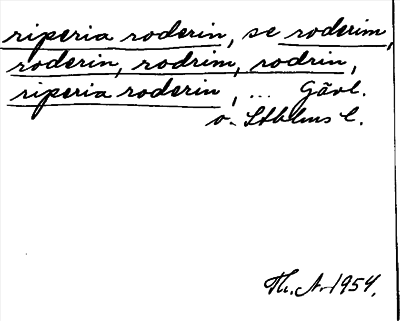 riperia roderin, se roderim,
roderin, rodrim, rodrin,
riperia roderin, ... Gävl.
o. Sthlms l.
Th. A. 1954.